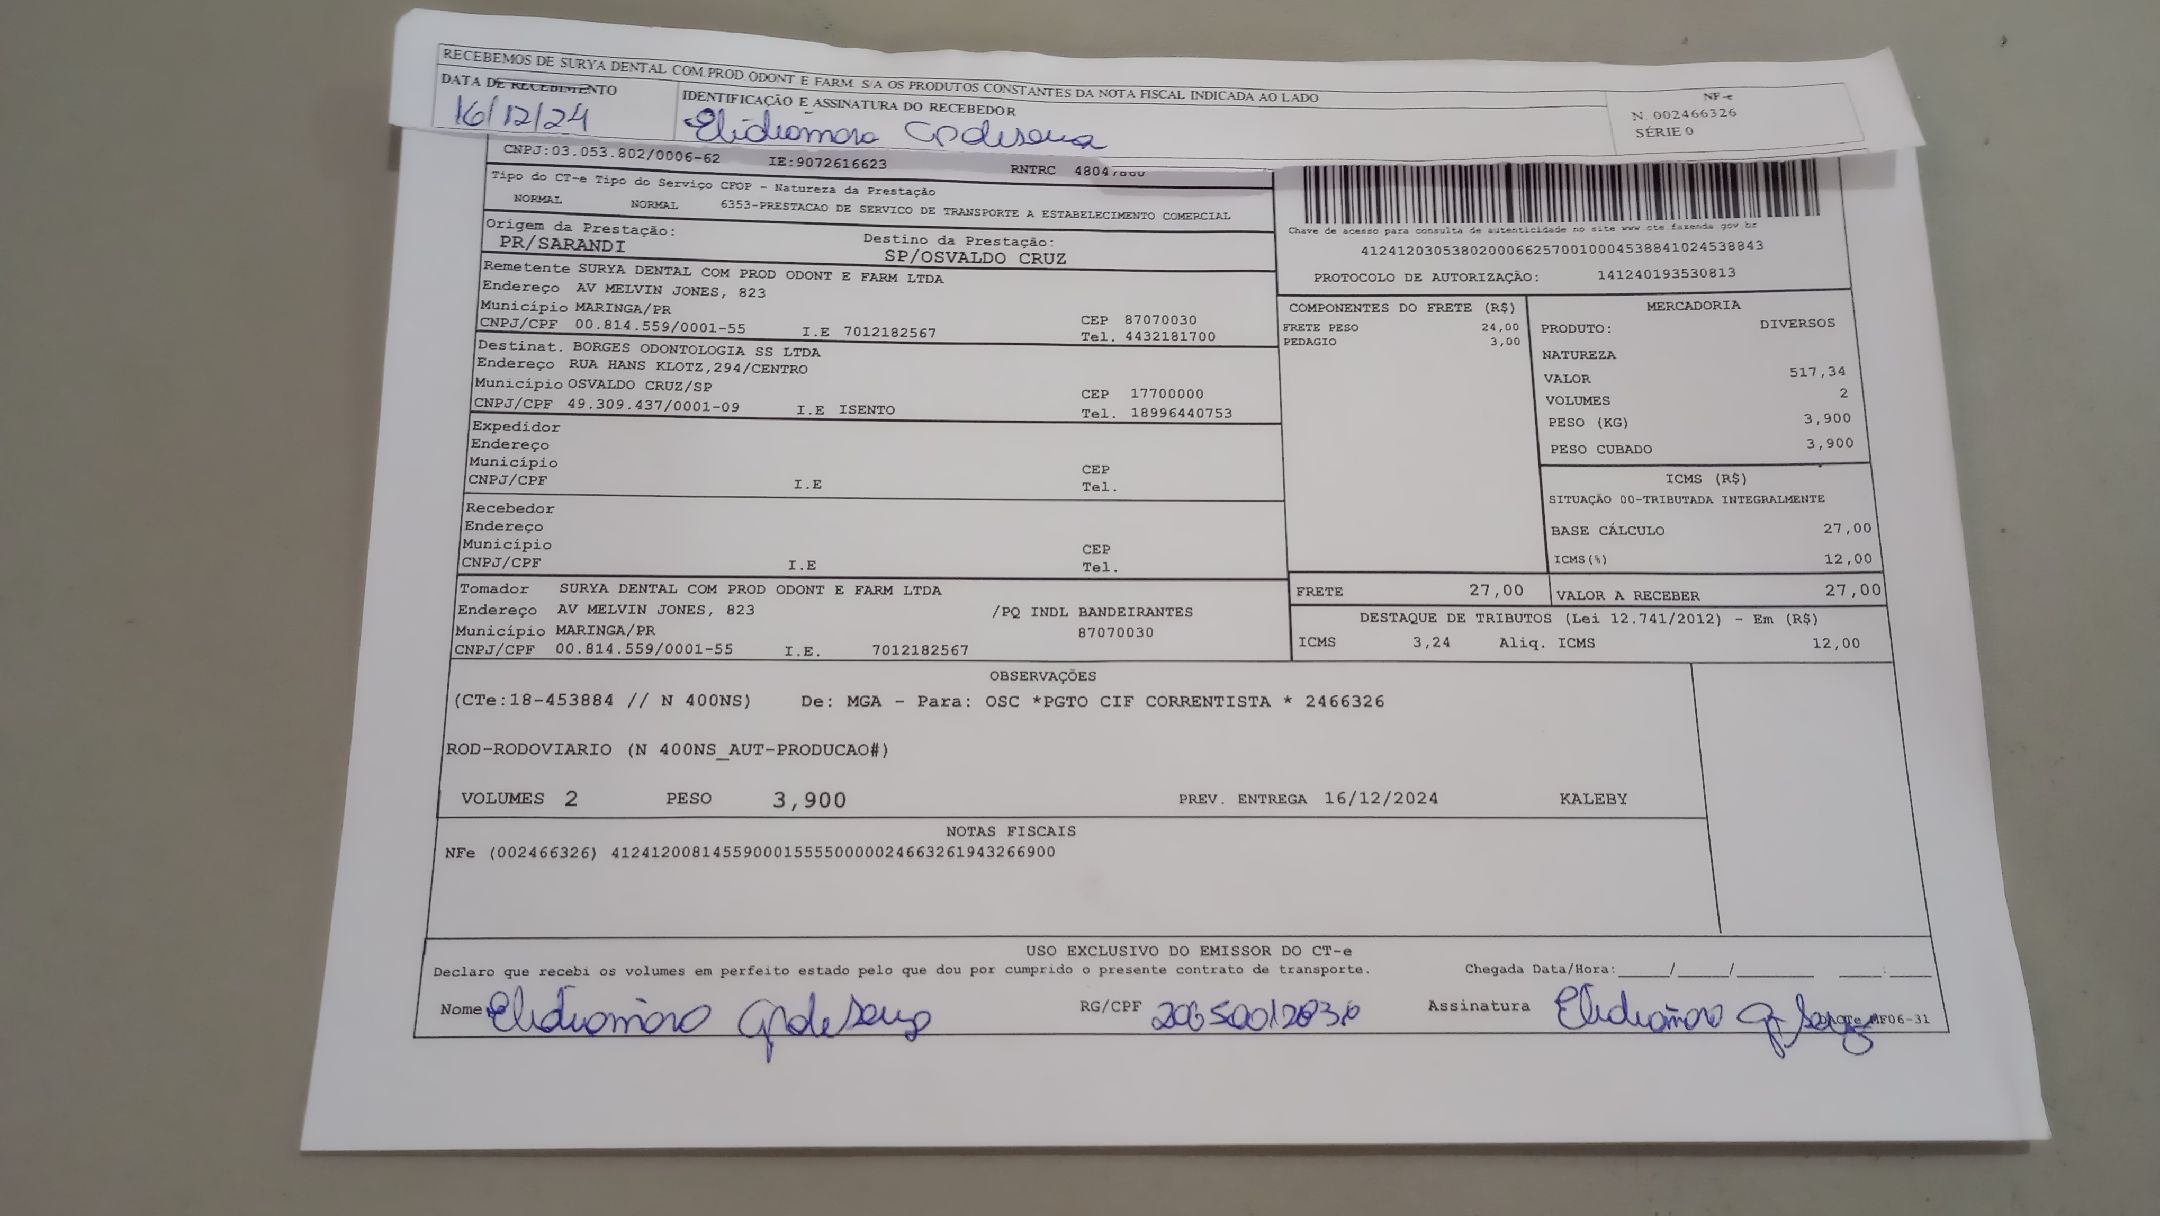 RECEBEMOS DE SURYA DENTAL COM PROD ODONT E FARM S/A OS PRODUTOS CONSTANTES DA NOTA FISCAL INDICADA AO LADO
DATA DE RECEBIMENTO IDENTIFICAÇÃO E ASSINATURA DO RECEBEDOR
16/12/24
NF-e
N. 002466326
SÉRIE 0
CNPJ:03.053.802/0006-62 IE:9072616623 RNTRC
Tipo do CT-e Tipo do Serviço CFOP - Natureza da Prestação
NORMAL NORMAL 6353-PRESTACAO DE SERVICO DE TRANSPORTE A ESTABELECIMENTO COMERCIAL
Origem da Prestação: Destino da Prestação:
PR/SARANDI SP/OSVALDO CRUZ
Chave de acesso para consulta de autenticidade no site www.cte.fazenda.gov.br
41241203053802000662570010004538841024538843
PROTOCOLO DE AUTORIZAÇÃO: 141240193530813
Remetente SURYA DENTAL COM PROD ODONT E FARM LTDA
Endereço AV MELVIN JONES, 823
Município MARINGA/PR CEP 87070030
CNPJ/CPF 00.814.559/0001-55 I.E 7012182567 Tel. 4432181700
Destinat. BORGES ODONTOLOGIA SS LTDA
Endereço RUA HANS KLOTZ,294/CENTRO
Município OSVALDO CRUZ/SP CEP 17700000
CNPJ/CPF 49.309.437/0001-09 I.E ISENTO Tel. 18996440753
Expedidor
Endereço
Município CEP
CNPJ/CPF I.E Tel.
Recebedor
Endereço
Município CEP
CNPJ/CPF I.E Tel.
Tomador SURYA DENTAL COM PROD ODONT E FARM LTDA
Endereço AV MELVIN JONES, 823 /PQ INDL BANDEIRANTES
Município MARINGA/PR 87070030
CNPJ/CPF 00.814.559/0001-55 I.E. 7012182567
COMPONENTES DO FRETE (R$)
FRETE PESO 24,00
PEDAGIO 3,00
MERCADORIA
PRODUTO: DIVERSOS
NATUREZA
VALOR 517,34
VOLUMES 2
PESO (KG) 3,900
PESO CUBADO 3,900
ICMS (R$)
SITUAÇÃO 00-TRIBUTADA INTEGRALMENTE
BASE CÁLCULO 27,00
ICMS(%) 12,00
FRETE 27,00 VALOR A RECEBER 27,00
DESTAQUE DE TRIBUTOS (Lei 12.741/2012) - Em (R$)
ICMS 3,24 Aliq. ICMS 12,00
OBSERVAÇÕES
(CTe:18-453884 // N 400NS) De: MGA - Para: OSC *PGTO CIF CORRENTISTA * 2466326
ROD-RODOVIARIO (N 400NS_AUT-PRODUCAO#)
VOLUMES 2 PESO 3,900 PREV. ENTREGA 16/12/2024 KALEBY
NOTAS FISCAIS
NFe (002466326) 41241200814559000155550000024663261943266900
USO EXCLUSIVO DO EMISSOR DO CT-e
Declaro que recebi os volumes em perfeito estado pelo que dou por cumprido o presente contrato de transporte. Chegada Data/Hora:_____/_____/________ ____:____
Nome RG/CPF Assinatura
MF06-31